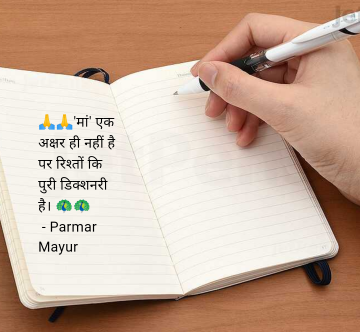 🙏🙏'मां' एक
अक्षर ही नहीं है
पर रिश्तों कि
पुरी डिक्शनरी
है। 🦚🦚
- Parmar
Mayur